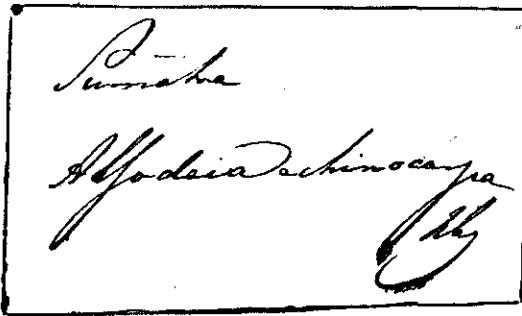 Sumatra
Alsodeia echinocarpa